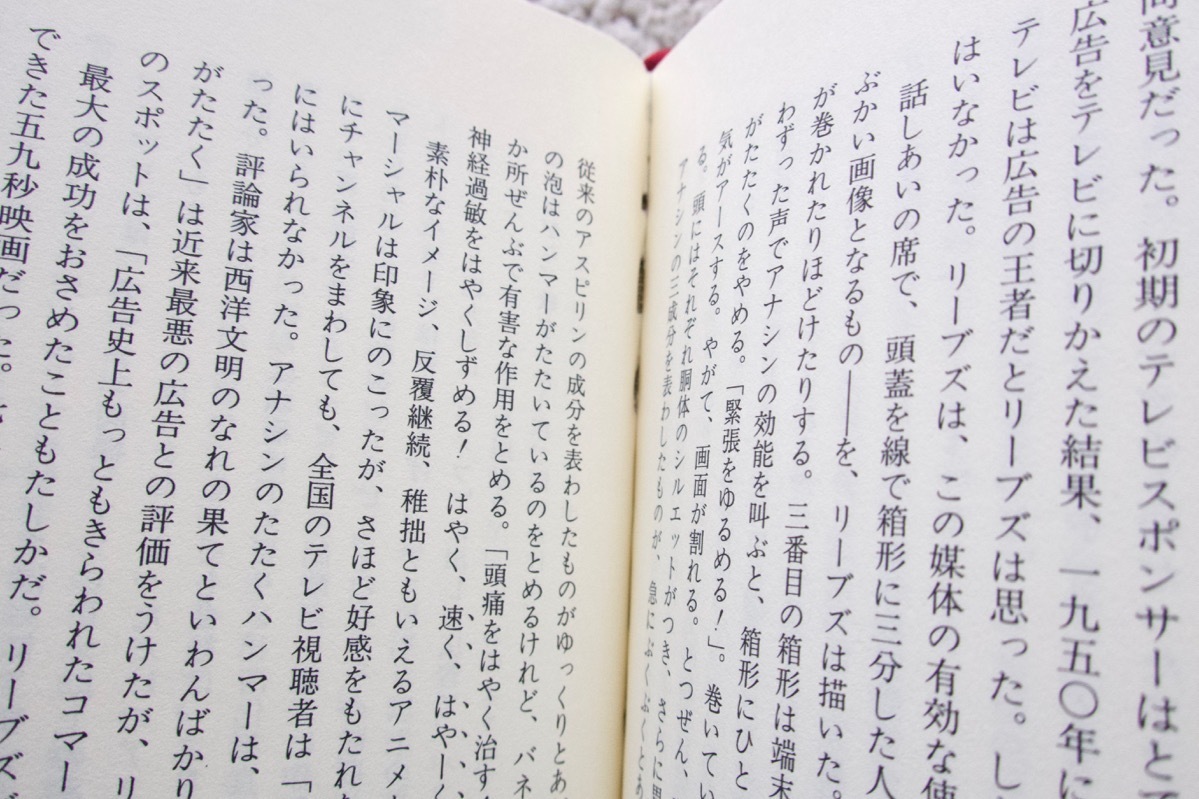 同意見だった。初期のテレビスポンサーはとて
広告をテレビに切りかえた結果、一九五〇年に
テレビは広告の王者だとリーブズは思った。し
はいなかった。リーブズは、この媒体の有効な使
話しあいの席で、頭蓋を線で箱形に三分した人
ぶかい画像となるもの――を、リーブズは描いた。
が巻かれたりほどけたりする。三番目の箱形は端末
わずった声でアナシンの効能を叫ぶと、箱形にひと
がたたくのをやめる。「緊張をゆるめる！」。巻いてい
気がアースする。やがて、画面が割れる。とつぜん、
る。頭にはそれぞれ胴体のシルエットがつき、さらに
アナシンの三成分を表わしたものが、急にぶくぶくとあ
従来のアスピリンの成分を表わしたものがゆっくりとあ
の泡はハンマーがたたいているのをとめるけれど、バネ
か所ぜんぶで有害な作用をとめる。「頭痛をはやく治す
神経過敏をはやくしずめる！　はやく、速く、はやーく
素朴なイメージ、反覆継続、稚拙ともいえるアニメ
マーシャルは印象にのこったが、さほど好感をもたれ
にチャンネルをまわしても、全国のテレビ視聴者は「
にはいられなかった。アナシンのたたくハンマーは、
った。評論家は西洋文明のなれの果てといわんばかり
がたたく」は近来最悪の広告との評価をうけたが、リ
のスポットは、「広告史上もっともきらわれたコマー
最大の成功をおさめたこともたしかだ。リーブズ
できた五九秒映画だった。